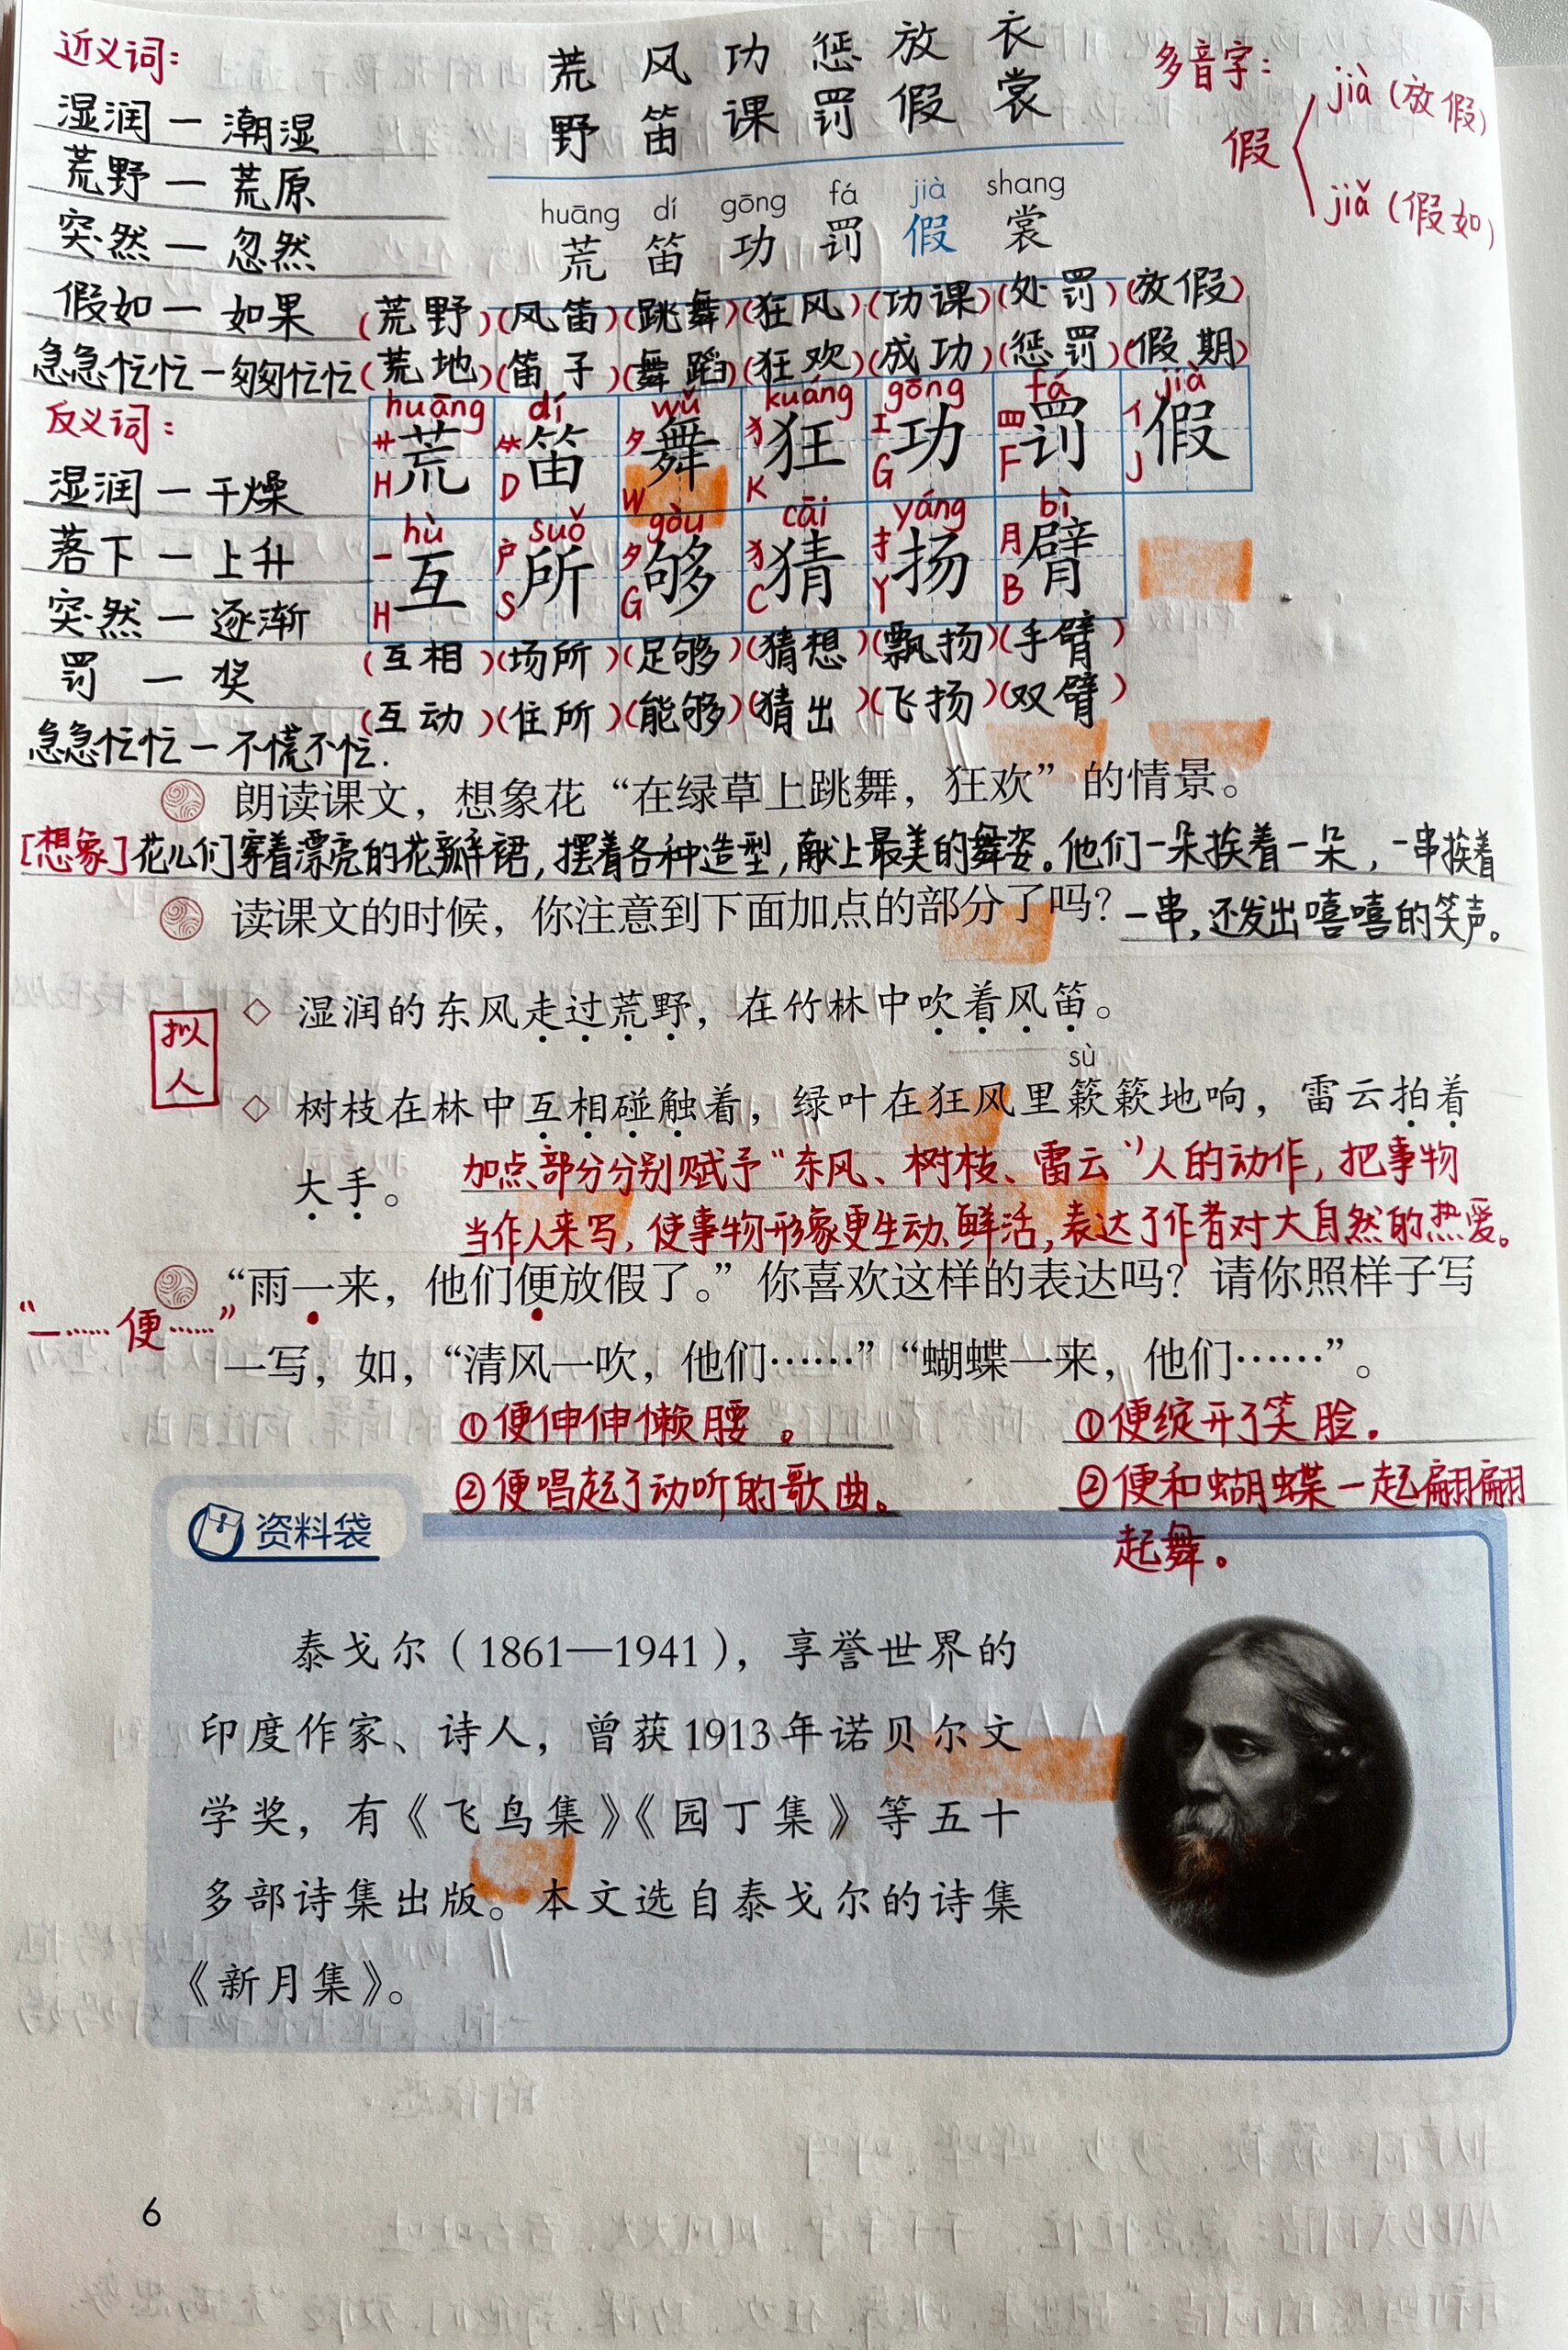 近义词：
湿润—潮湿
荒野—荒原
突然—忽然
假如—如果
急急忙忙—匆匆忙忙
反义词：
湿润—干燥
落下—上升
突然—逐渐
罚—奖
急急忙忙—不慌不忙.
荒 风 功 惩 放 衣
野 笛 课 罚 假 裳
多音字：
假
jià（放假）
jiǎ（假如）
huāng dí gōng fá jià shang
荒 笛 功 罚 假 裳
（荒野）（风笛）（跳舞）（狂风）（功课）（处罚）（放假）
（荒地）（笛子）（舞蹈）（狂欢）（成功）（惩罚）（假期）
huāng dí wǔ kuáng gōng fá jià
艹荒 ⺮笛 夕舞 犭狂 工功 罒罚 亻假
H D W K G F J
hù suǒ gòu cāi yáng bì
一互 户所 夕够 犭猜 扌扬 月臂
H S G C Y B
（互相）（场所）（足够）（猜想）（飘扬）（手臂）
（互动）（住所）（能够）（猜出）（飞扬）（双臂）
朗读课文，想象花“在绿草上跳舞，狂欢”的情景。
[想象]花儿们穿着漂亮的花瓣裙，摆着各种造型，献上最美的舞姿。他们一朵挨着一朵，一串挨着
一串，还发出嘻嘻的笑声。
读课文的时候，你注意到下面加点的部分了吗？
拟
人
◇ 湿润的东风走过荒野，在竹林中吹着风笛。
sù
◇ 树枝在林中互相碰触着，绿叶在狂风里簌簌地响，雷云拍着
大手。
加点部分分别赋予“东风、树枝、雷云”人的动作，把事物
当作人来写，使事物形象更生动、鲜活，表达了作者对大自然的热爱。
“雨一来，他们便放假了。”你喜欢这样的表达吗？请你照样子写
“一……便……”
一写，如，“清风一吹，他们……”“蝴蝶一来，他们……”。
①便伸伸懒腰。
②便唱起了动听的歌曲。
①便绽开了笑脸.
②便和蝴蝶一起翩翩
起舞。
资料袋
泰戈尔（1861—1941），享誉世界的
印度作家、诗人，曾获1913年诺贝尔文
学奖，有《飞鸟集》《园丁集》等五十
多部诗集出版。本文选自泰戈尔的诗集
《新月集》。
6